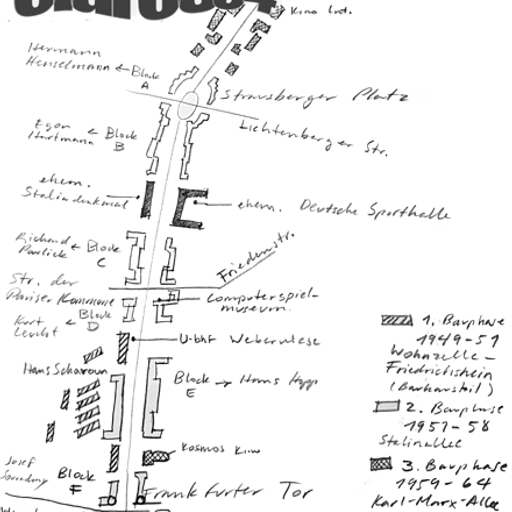 Kino Int.
Hermann
Henselmann ← Block
A
Strausberger Platz
Lichtenberger Str.
Egon
Hartmann ← Block
B
ehem.
Stalindenkmal
ehem. Deutsche Sporthalle
Richard
Paulick ← Block
C
Friedenstr.
Str. der
Pariser Kommune
Computerspiel-
museum
Block
D
Kurt
Leucht ←
U-bhf Weberwiese
Hans Scharoun
Block → Hans Hopp
E
Kosmos Kino
Josef
Block
F
Frankfurter Tor
1. Bauphase
1949-51
Wohnzelle-
Friedrichshain
(Bauhausstil)
2. Bauphase
1951-58
Stalinallee
3. Bauphase
1959-64
Karl-Marx-Allee